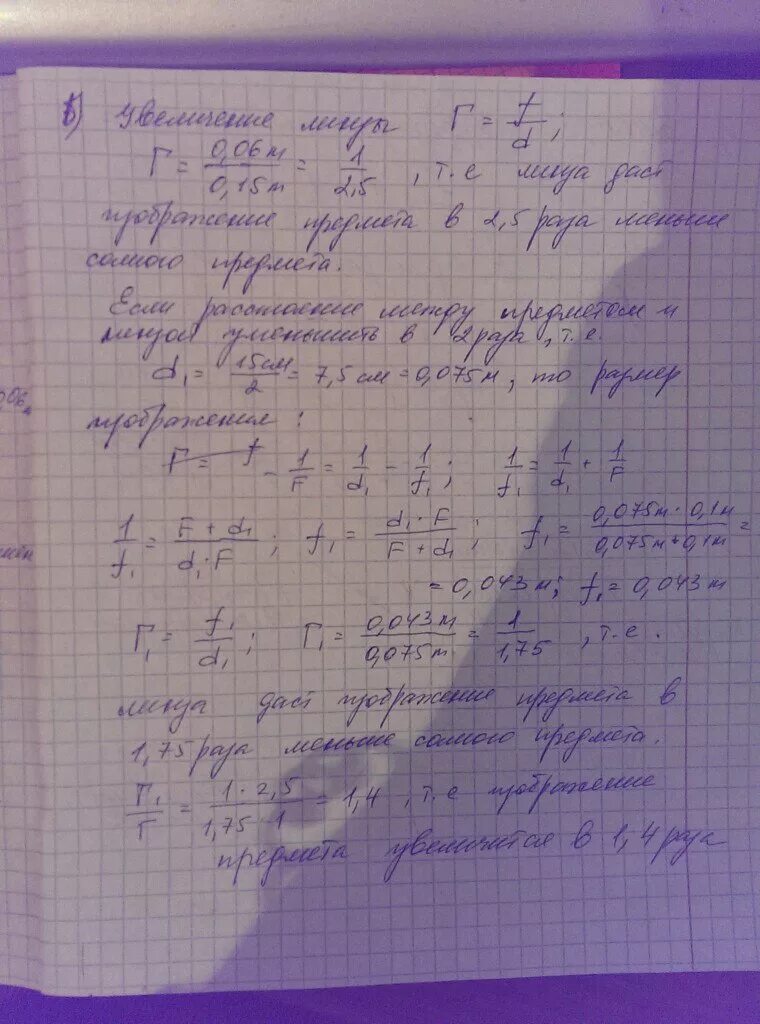 б) Увеличение линзы Г = f/d;
Г = 0,06 м/0,15 м = 1/2,5, т.е линза даст
изображение предмета в 2,5 раза меньше
самого предмета.
Если расстояние между предметом и
линзой уменьшить в 2 раза, т.е.
d₁ = 15 см/2 = 7,5 см = 0,075 м, то размер
изображения:
Г = f - 1/F = 1/d₁ - 1/f₁; 1/f₁ = 1/d₁ + 1/F
1/f₁ = F + d₁/d₁·F; f₁ = d₁·F/F + d₁; f₁ = 0,075м · 0,1м/0,075м + 0,1м =
= 0,043 м; f₁ = 0,043 м
Г₁ = f₁/d₁; Г₁ = 0,043 м/0,075 м = 1/1,75, т.е.
линза даст изображение предмета в
1,75 раза меньше самого предмета.
Г₁/Г = 1 · 2,5/1,75 · 1 = 1,4, т.е изображение
предмета увеличится в 1,4 раза